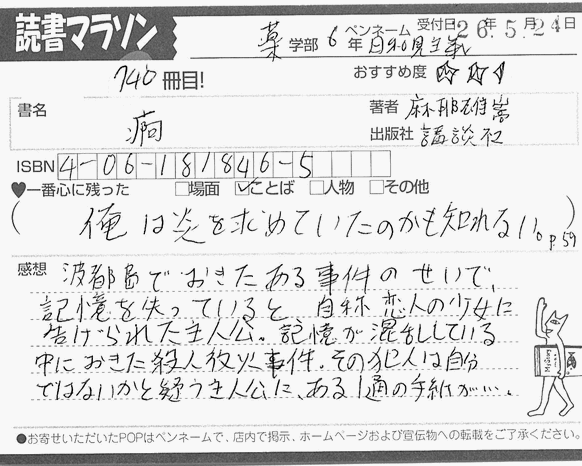 読書マラソン
薬 学部 6 年 ペンネーム 自知現主義 受付日 26年5月24日
740 冊目!
おすすめ度 ☆☆
書名
痾
著者 麻耶雄嵩
出版社 講談社
ISBN 4-06-181846-5
♥一番心に残った □場面 ☑ことば □人物 □その他
( 俺は炎を求めていたのかも知れない。p.59
感想 波都島でおきたある事件のせいで、
記憶を失っていると、自称恋人の少女に
告げられた主人公。記憶が混乱している
中におきた殺人放火事件。その犯人は自分
ではないかと疑う主人公に、ある1通の手紙が…。
●お寄せいただいたPOPはペンネームで、店内で掲示、ホームページおよび宣伝物への転載をご了承ください。